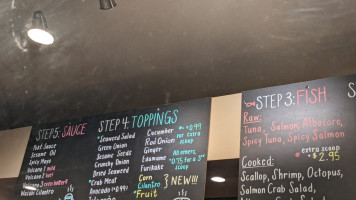 STEP 5: SAUCE
Hot Sauce
Sesame Oil
Spicy Mayo
Wasabi Cilantro
STEP 4: TOPPINGS
*Seaweed Salad
Green Onion
Dried Onion
Sesame Seeds
Crunchy Onion
*Crab Meat
*Avocado +0.99
Cucumber
Red Onion
Ginger
Edamame
Furikake
Corn
Cilantro
*Fruit
NEW!!!
* +0.99
for extra
scoop
All others
*0.75 for 3rd
scoop
STEP 3: FISH
Raw:
Tuna, Salmon, Albacore,
Spicy Tuna, Spicy Salmon
* extra scoop
+ $2.95
Cooked:
Scallop, Shrimp, Octopus,
Salmon, Crab Salad,